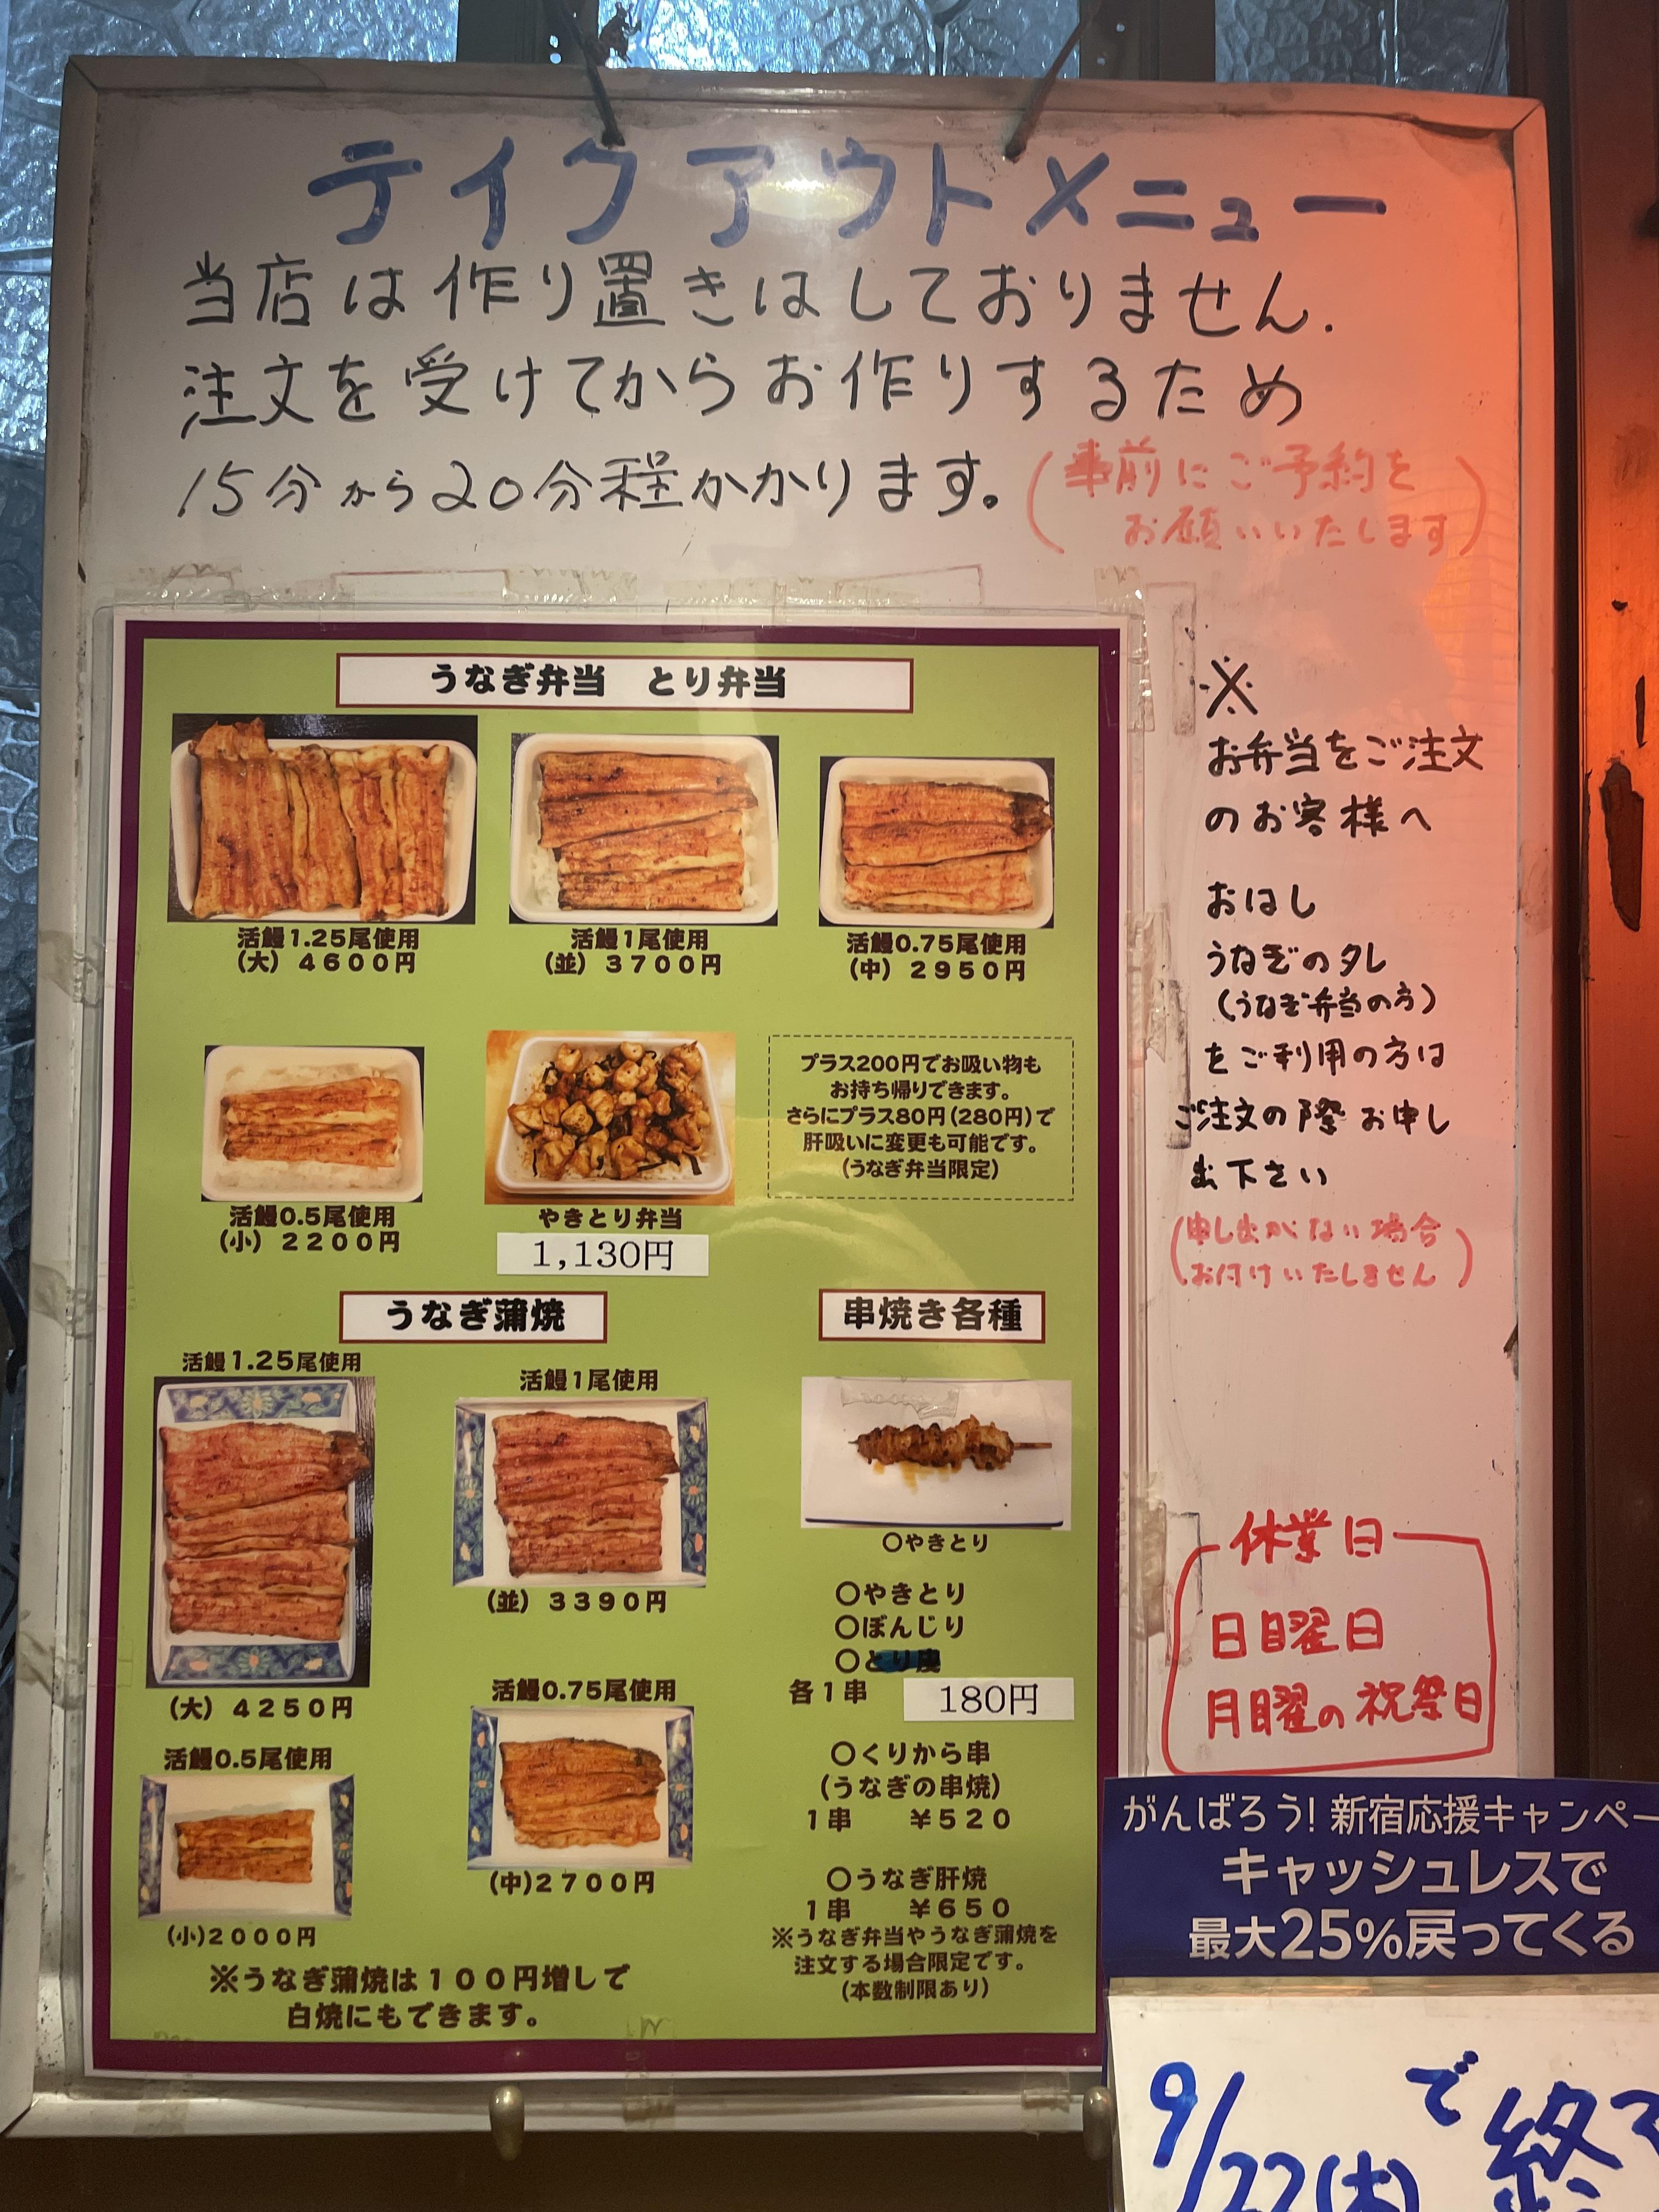 テイクアウトメニュー
当店は作り置きはしておりません.
注文を受けてからお作りするため
15分から20分程かかります。
(事前にご予約を
お願いいたします)
うなぎ弁当 とり弁当
活鰻1.25尾使用
(大) 4600円
活鰻1尾使用
(並) 3700円
活鰻0.75尾使用
(中) 2950円
活鰻0.5尾使用
(小) 2200円
やきとり弁当
1,130円
プラス200円でお吸い物も
お持ち帰りできます。
さらにプラス80円(280円)で
肝吸いに変更も可能です。
(うなぎ弁当限定)
うなぎ蒲焼
活鰻1.25尾使用
(大) 4250円
活鰻1尾使用
(並) 3390円
活鰻0.75尾使用
(中)2700円
活鰻0.5尾使用
(小)2000円
※うなぎ蒲焼は100円増しで
白焼にもできます。
串焼き各種
○やきとり
○やきとり
○ぼんじり
○とり皮
各1串 180円
○くりから串
(うなぎの串焼)
1串 ¥520
○うなぎ肝焼
1串 ¥650
※うなぎ弁当やうなぎ蒲焼を
注文する場合限定です。
(本数制限あり)
※
お弁当をご注文
のお客様へ
おはし
うなぎのタレ
(うなぎ弁当の方)
をご利用の方は
ご注文の際お申し
出下さい
(申し出がない場合
お付けいたしません)
休業日
日曜日
月曜の祝祭日
がんばろう!新宿応援キャンペー
キャッシュレスで
最大25%戻ってくる
9/22(木)で終